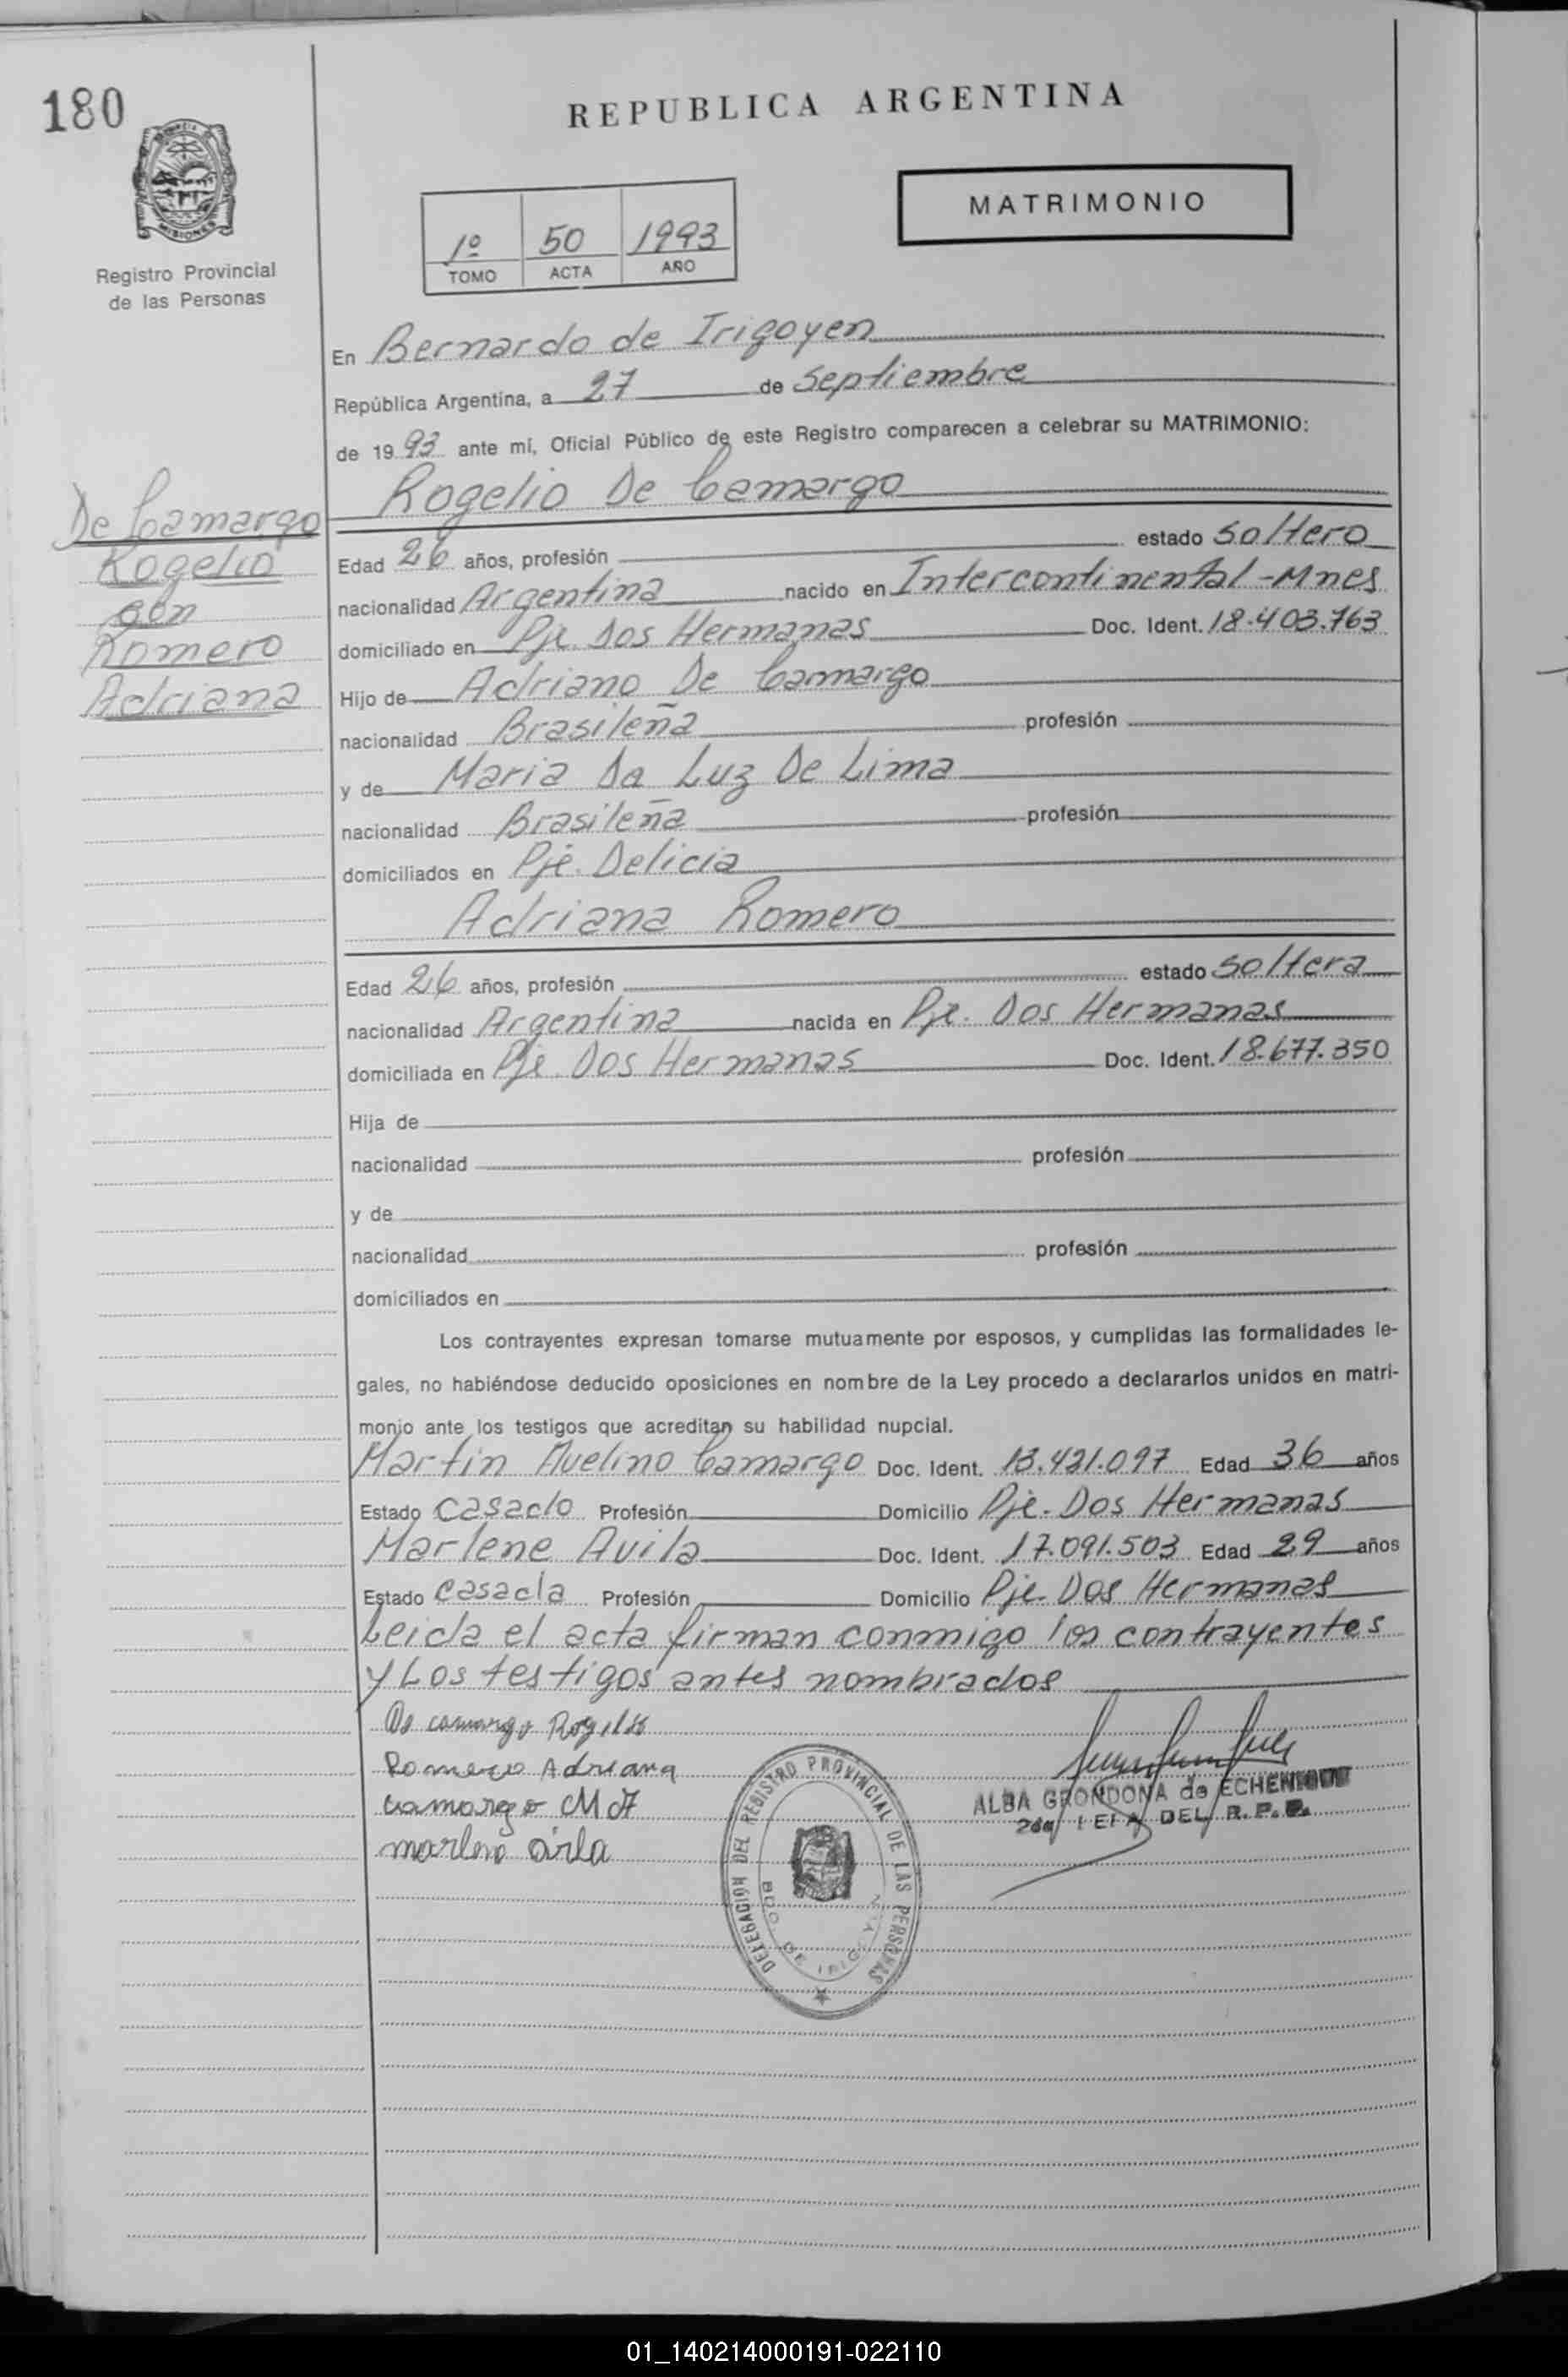 180
REPUBLICA ARGENTINA
MISIONES
Registro Provincial
de las Personas
1º 50 1993
TOMO ACTA AÑO
MATRIMONIO
En Bernardo de Irigoyen
República Argentina, a 27 de Septiembre
de 1993 ante mí, Oficial Público de este Registro comparecen a celebrar su MATRIMONIO:
De Camargo
Rogelio
con
Romero
Adriana
Rogelio De Camargo
Edad 26 años, profesión estado Soltero
nacionalidad Argentina nacido en Intercontinental-Mnes
domiciliado en Pje. Dos Hermanas Doc. Ident. 18.403.763
Hijo de Adriano De Camargo
nacionalidad Brasileña profesión
y de Maria Da Luz De Lima
nacionalidad Brasileña profesión
domiciliados en Pje. Delicia
Adriana Romero
Edad 26 años, profesión estado Soltera
nacionalidad Argentina nacida en Pje. Dos Hermanas
domiciliada en Pje. Dos Hermanas Doc. Ident. 18.677.350
Hija de
nacionalidad profesión
y de
nacionalidad profesión
domiciliados en
Los contrayentes expresan tomarse mutuamente por esposos, y cumplidas las formalidades le-
gales, no habiéndose deducido oposiciones en nombre de la Ley procedo a declararlos unidos en matri-
monio ante los testigos que acreditan su habilidad nupcial.
Martin Avelino Camargo Doc. Ident. 13.421.097 Edad 36 años
Estado Casado Profesión Domicilio Pje. Dos Hermanas
Marlene Avila Doc. Ident. 17.091.503 Edad 29 años
Estado Casada Profesión Domicilio Pje. Dos Hermanas
Leida el acta firman conmigo los contrayentes
y Los testigos antes nombrados
De camargo Rogelio
Romero Adriana
Camargo M A
ALBA GRONDONA de ECHENIQUE
DEL R.P.P.
DELEGACION DEL REGISTRO PROVINCIAL DE LAS PERSONAS
BDO. DE IRIGOYEN
01_140214000191-022110